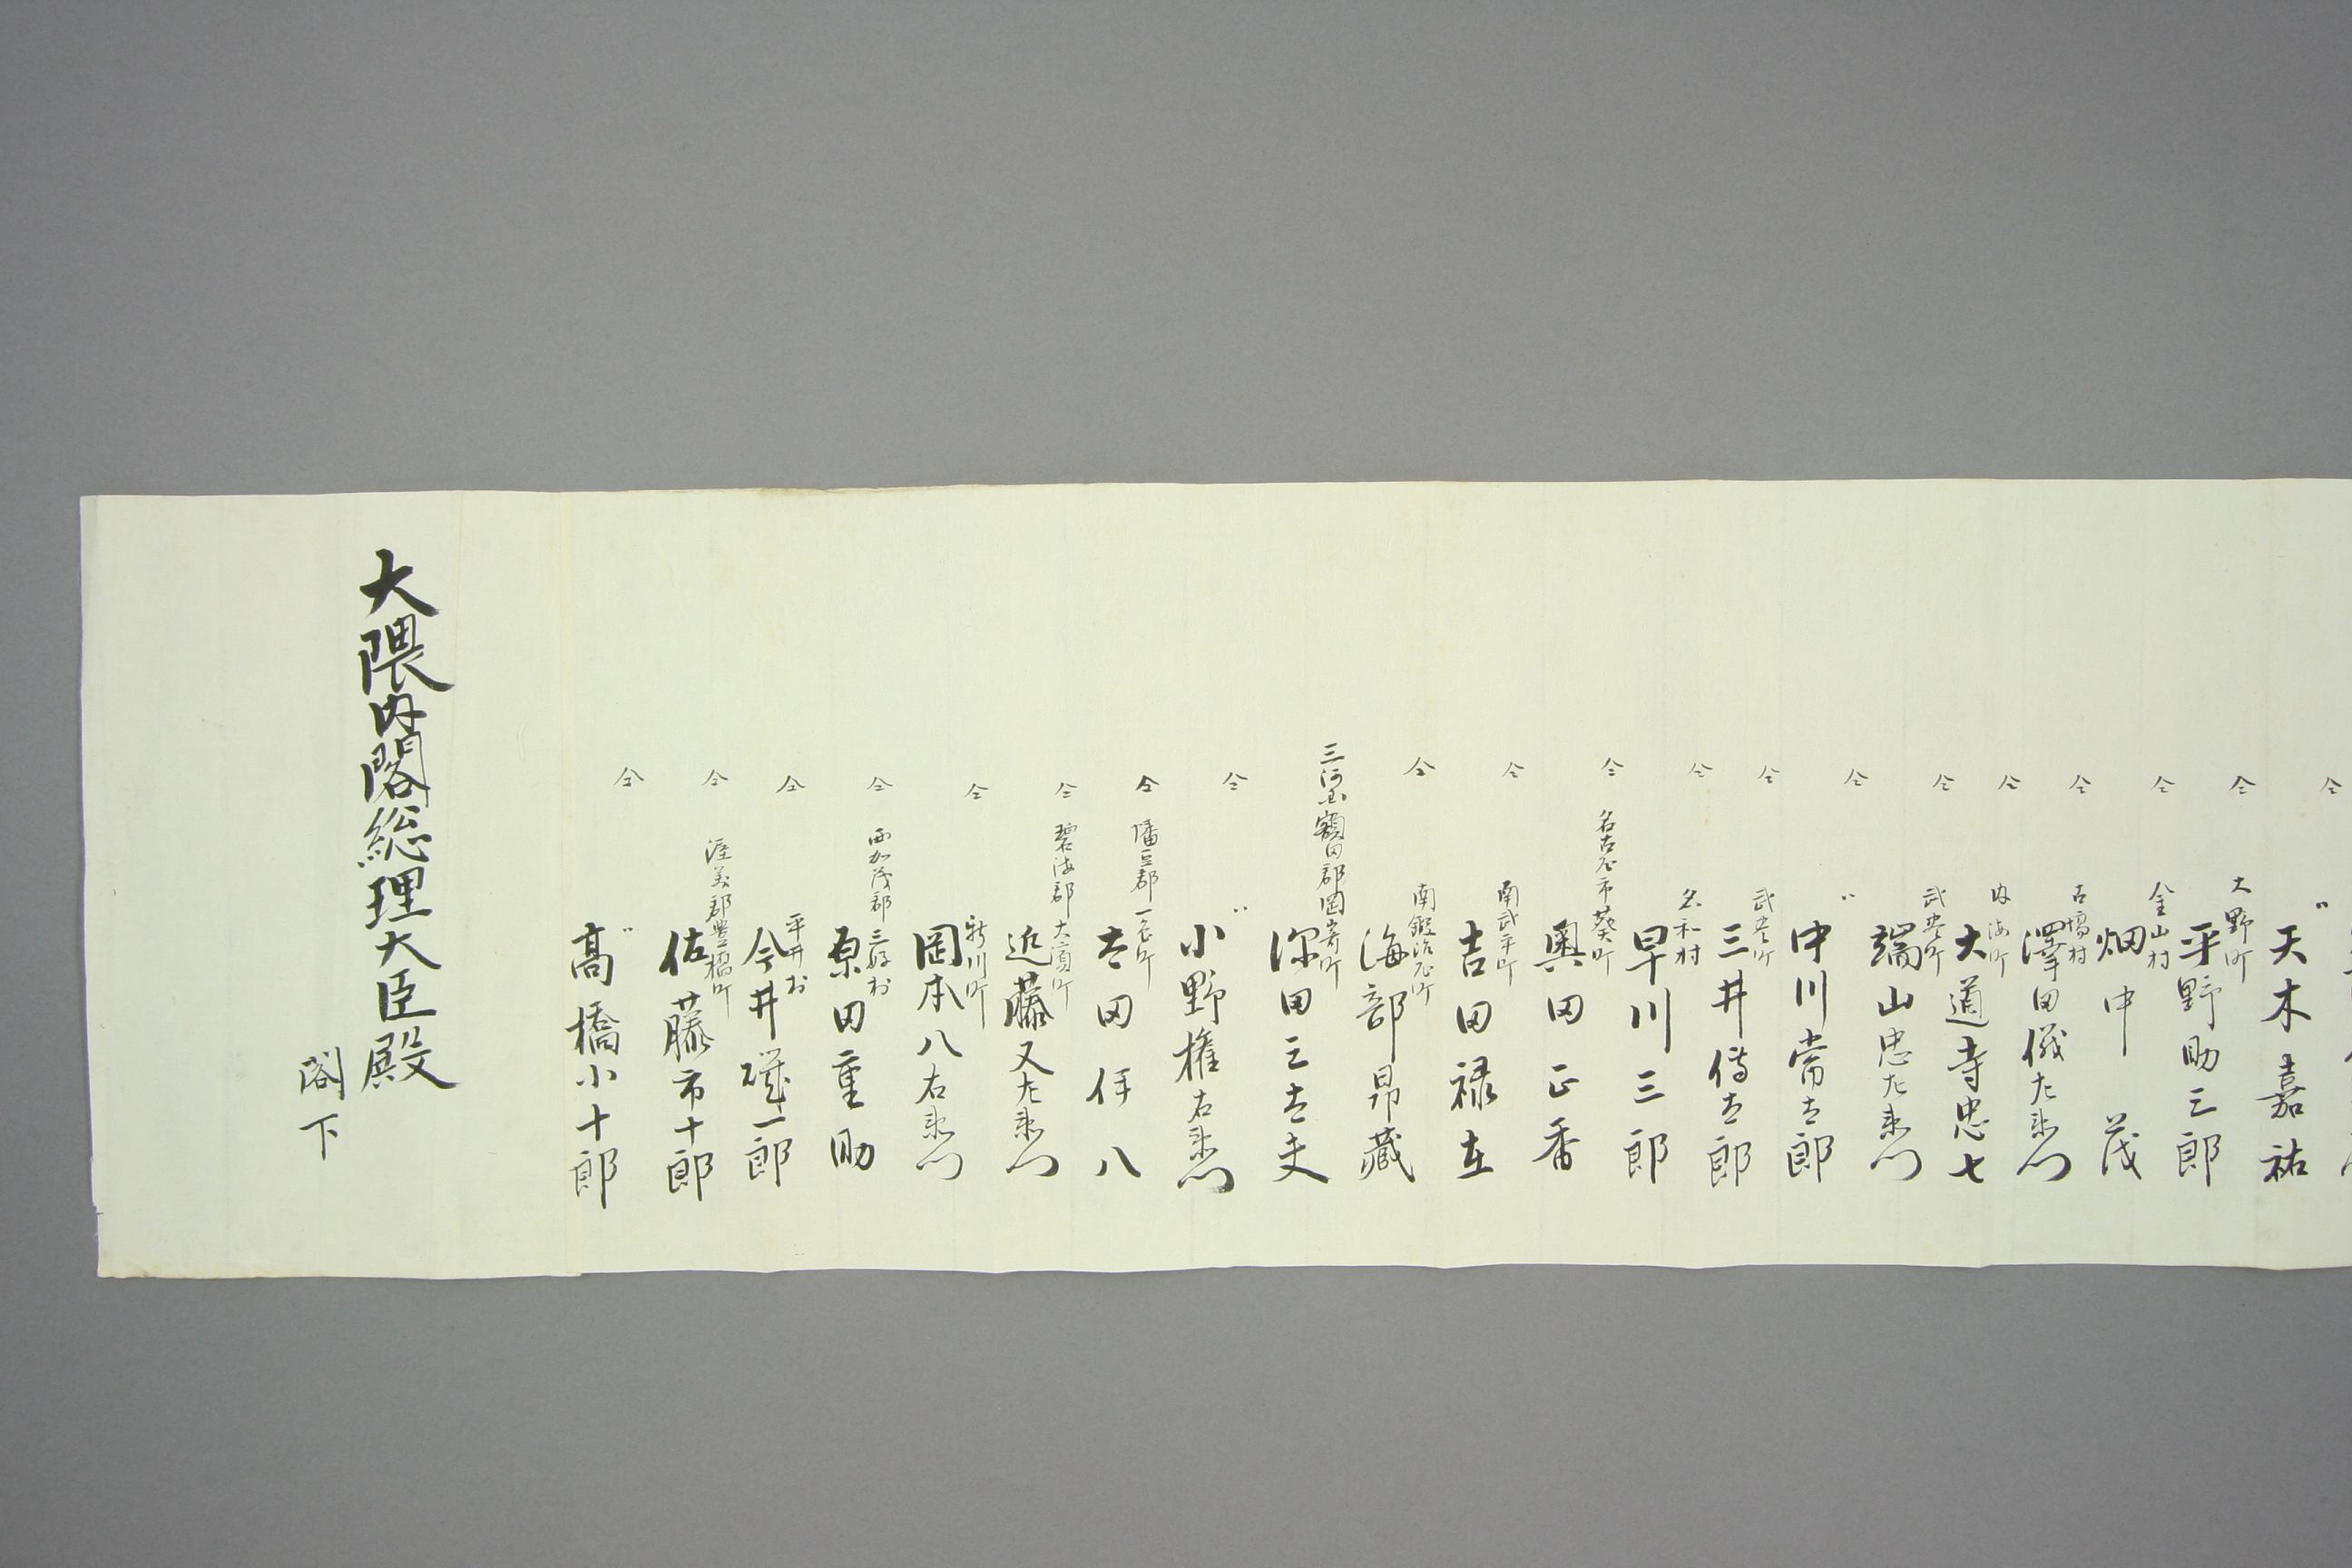 仝 〃
天木嘉祐
仝 大野町
平野助三郎
仝 金山村
畑中茂
仝 古場村
澤田儀左衛門
仝 内海町
大道寺忠七
仝 武豊町
端山忠左衛門
仝 〃
中川常太郎
仝 武豊町
三井傳太郎
仝 名和村
早川三郎
仝 名古屋市葵町
奥田正香
仝 南武平町
吉田禄在
仝 南鍛冶屋町
海部昂蔵
三河国額田郡岡崎町
深田三太夫
仝 〃
小野権右衛門
仝 幡豆郡一色町
太田伴八
仝 碧海郡大濱町
近藤又左衛門
仝 新川町
岡本八右衛門
仝 西加茂郡三好村
原田重助
仝 平井村
今井磯一郎
仝 渥美郡豊橋町
佐藤市十郎
仝 〃
髙橋小十郎
大隈内閣総理大臣殿
閣下